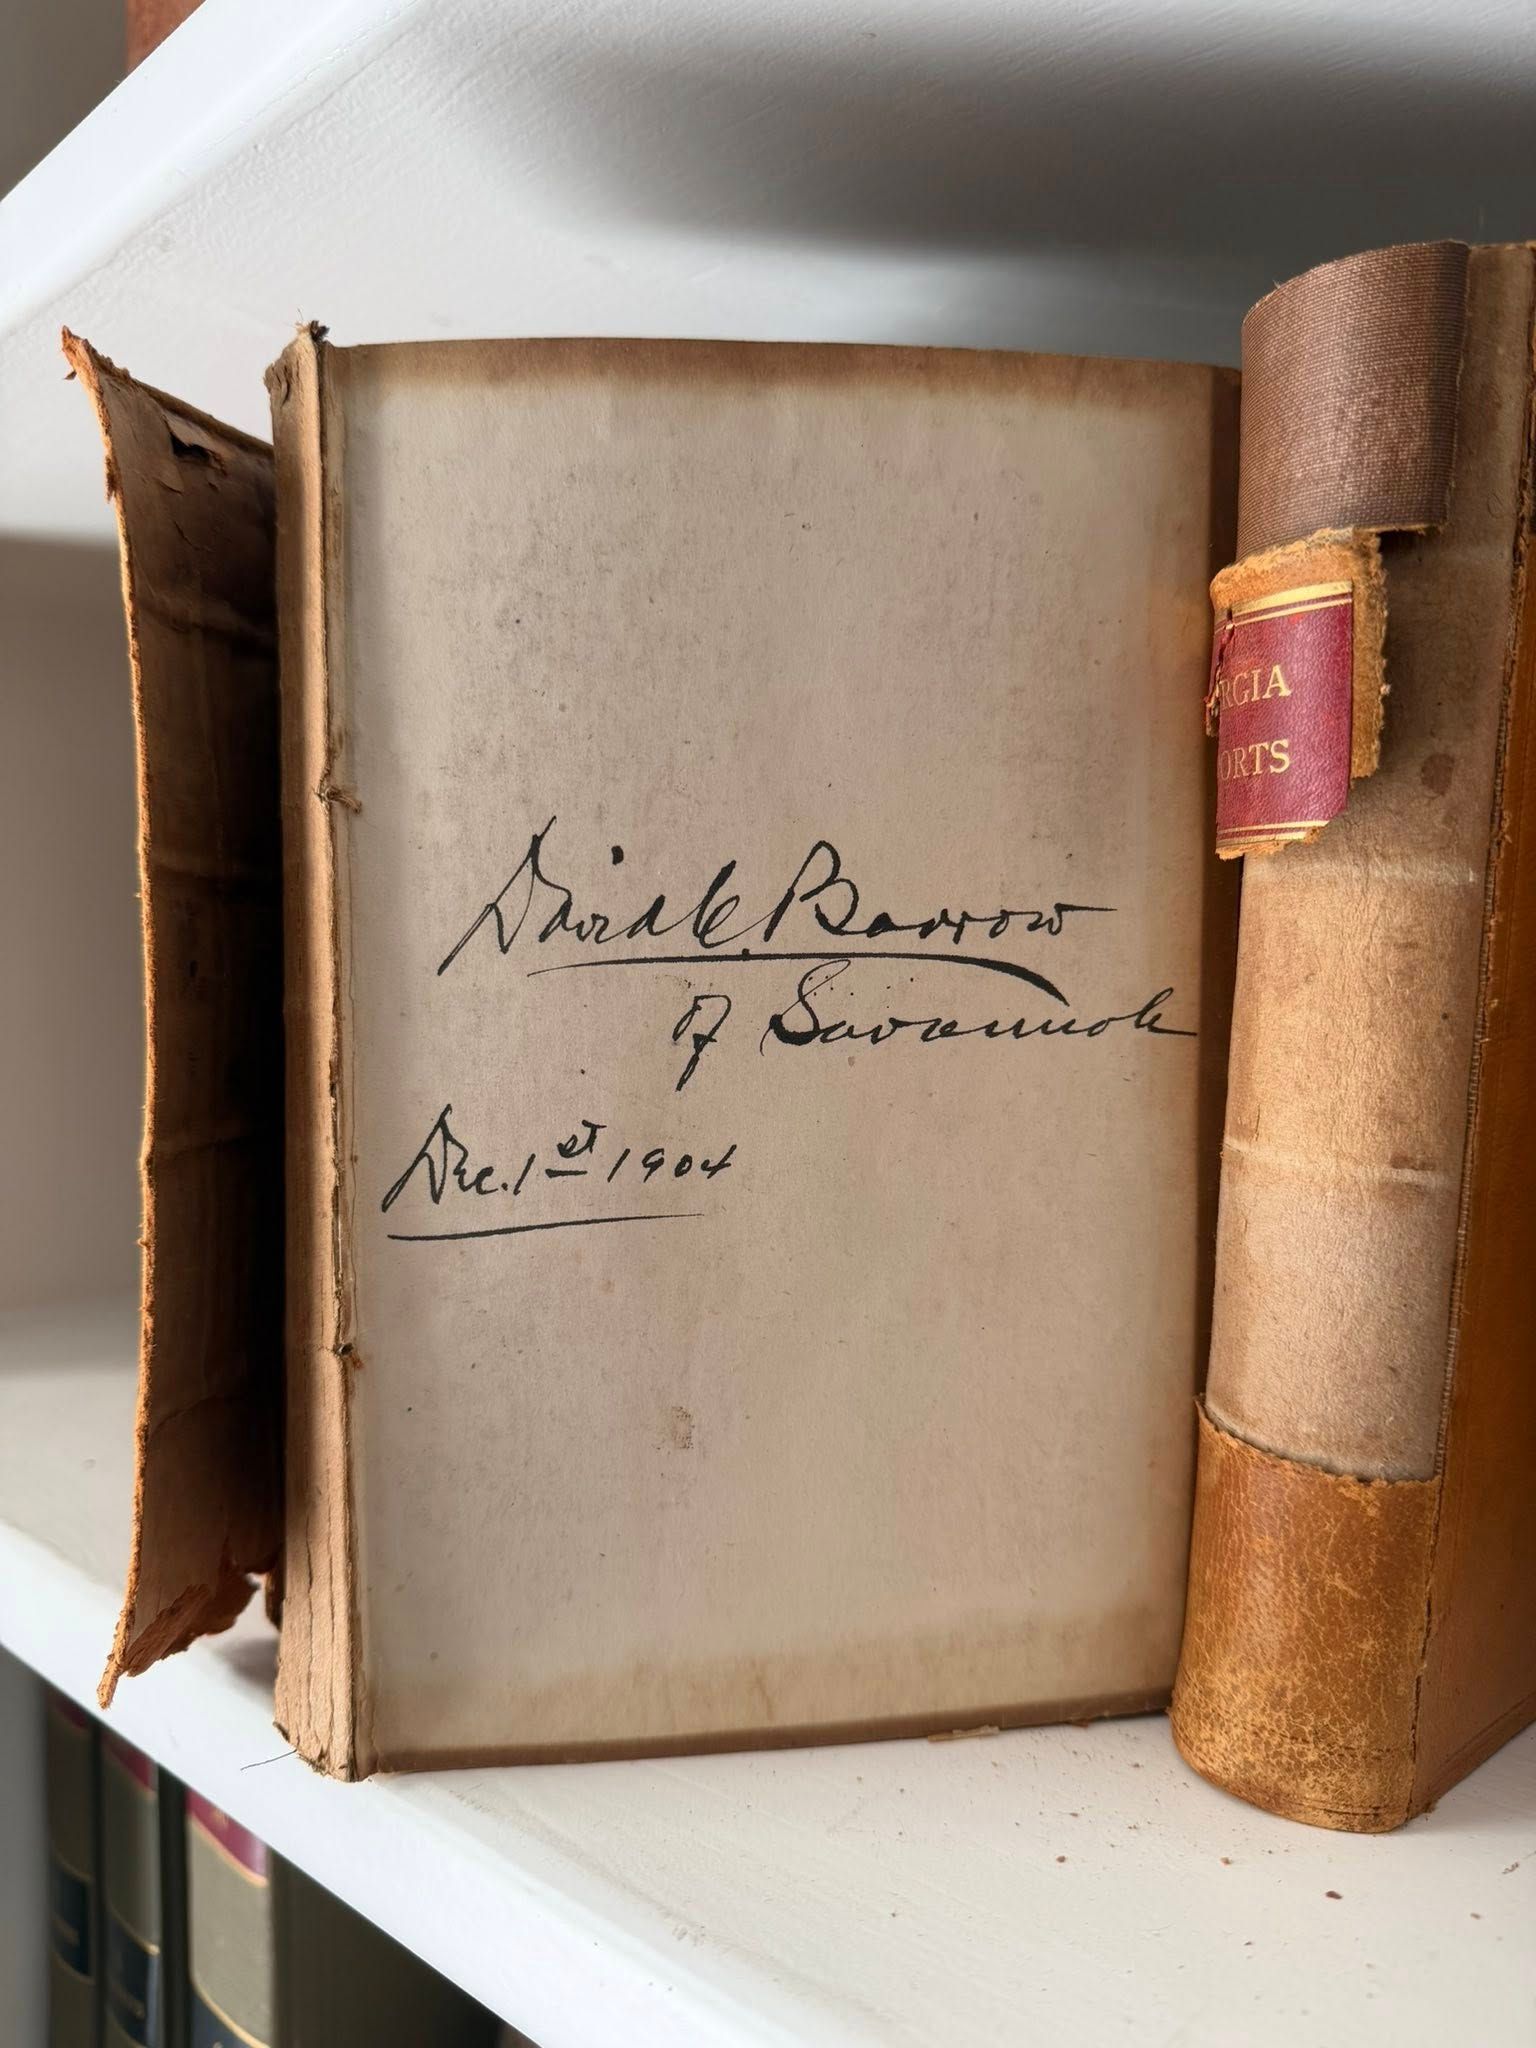 David C. Barrow
of Savannah
Dec. 1st 1904
RGIA
ORTS